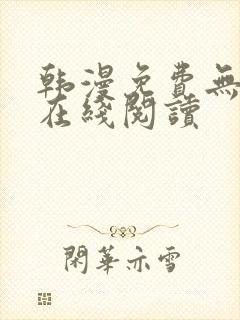 韩漫免費無
在綫閱讀
閑華亦雪